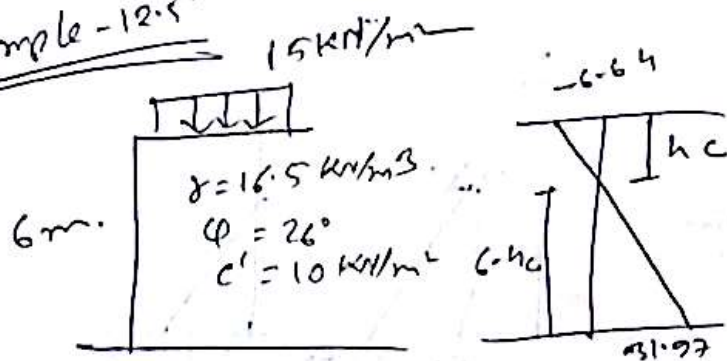 mple-12.5
15 kN/m²
-6.64
hc
6m.
γ = 16.5 kN/m3.
φ = 26°
c' = 10 kN/m²
...
6-hc
31.97